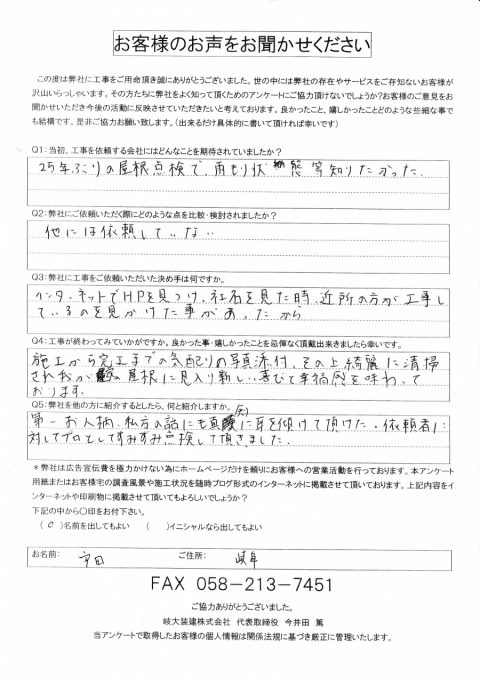 お客様のお声をお聞かせください
この度は弊社に工事をご用命頂き誠にありがとうございました。世の中には弊社の存在やサービスをご存知ないお客様が
沢山いらっしゃいます。その方たちに弊社をよく知って頂くためのアンケートにご協力頂けないでしょうか?お客様のご意見をお
聞かせいただき今後の活動に反映させていただきたいと考えております。良かったこと、嬉しかったことどのような些細な事で
も結構です。是非ご協力お願い致します。(出来るだけ具体的に書いて頂ければ幸いです)
Q1:当初、工事を依頼する会社にはどんなことを期待されていましたか?
25年ぶりの屋根点検で、雨もり状態等知りたかった.
Q2:弊社にご依頼いただく際にどのような点を比較・検討されましたか?
他には依頼していない
Q3:弊社に工事をご依頼いただいた決め手は何ですか。
インターネットでHPを見つけ、社名を見た時、近所の方が工事し
ているのを見かけた事があったから
Q4:工事が終わってみていかがですか。良かった事・嬉しかったことを忌憚なく頂戴出来きましたら幸いです。
施工から完工までの気配りの写真添付、その上綺麗に清掃
され我が家の屋根に見入り新しい喜びと幸福感を味わって
おります.
Q5:弊社を他の方に紹介するとしたら、何と紹介しますか。
第一お人柄、私方の話にも真剣に耳を傾けて頂けた。依頼者に
対してプロとしてすみずみ点検して頂きました.
*弊社は広告宣伝費を極力かけない為にホームページだけを頼りにお客様への営業活動を行っております。本アンケート
用紙またはお客様宅の調査風景や施工状況を随時ブログ形式のインターネットに掲載させて頂いております。上記内容をイ
ンターネットや印刷物に掲載させて頂いてもよろしいでしょうか?
下記の中から〇印をお付下さい。
(○)名前を出してもよい ( )イニシャルなら出してもよい
お名前: 田 ご住所: 岐阜
FAX 058-213-7451
ご協力ありがとうございました。
岐大装建株式会社 代表取締役 今井田 篤
当アンケートで取得したお客様の個人情報は関係法規に基づき厳正に管理いたします。